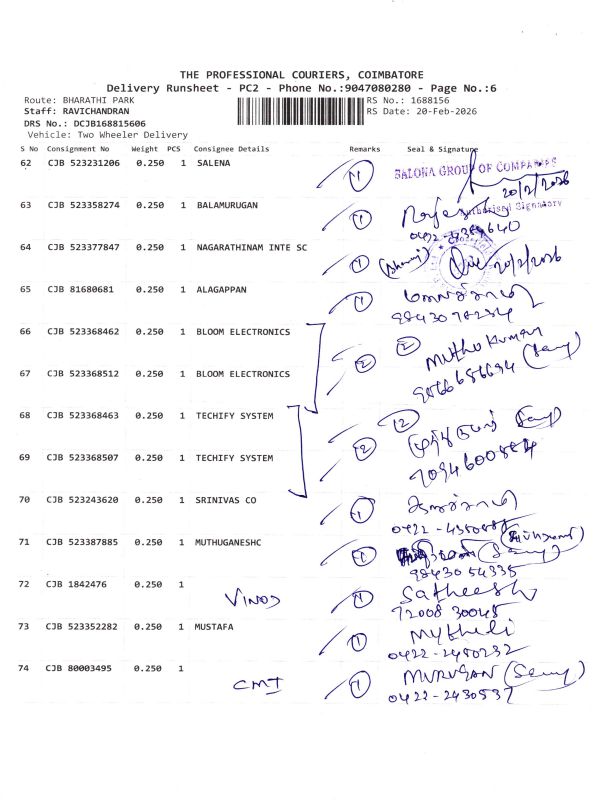 THE PROFESSIONAL COURIERS, COIMBATORE
Delivery Runsheet - PC2 - Phone No.:9047080280 - Page No.:6
Route: BHARATHI PARK RS No.: 1688156
Staff: RAVICHANDRAN RS Date: 20-Feb-2026
DRS No.: DCJB168815606
Vehicle: Two Wheeler Delivery
S No Consignment No Weight PCS Consignee Details Remarks Seal & Signature
62 CJB 523231206 0.250 1 SALENA 1 SALONA GROUP OF COMPANIES
20/2/2026
Authorised Signatory
63 CJB 523358274 0.250 1 BALAMURUGAN 1
64 CJB 523377847 0.250 1 NAGARATHINAM INTE SC 1 20/2/2026
65 CJB 81680681 0.250 1 ALAGAPPAN 1
66 CJB 523368462 0.250 1 BLOOM ELECTRONICS 2 2 Muthu Kumar
67 CJB 523368512 0.250 1 BLOOM ELECTRONICS
68 CJB 523368463 0.250 1 TECHIFY SYSTEM 2 12
69 CJB 523368507 0.250 1 TECHIFY SYSTEM
70 CJB 523243620 0.250 1 SRINIVAS CO 1
71 CJB 523387885 0.250 1 MUTHUGANESHC 1
9843054335
72 CJB 1842476 0.250 1 VINOD 1 Satheesh
72008 30045
73 CJB 523352282 0.250 1 MUSTAFA 1 Mythili
0422-2450232
74 CJB 80003495 0.250 1 CMI 1 MURUGAN
0422-2430537